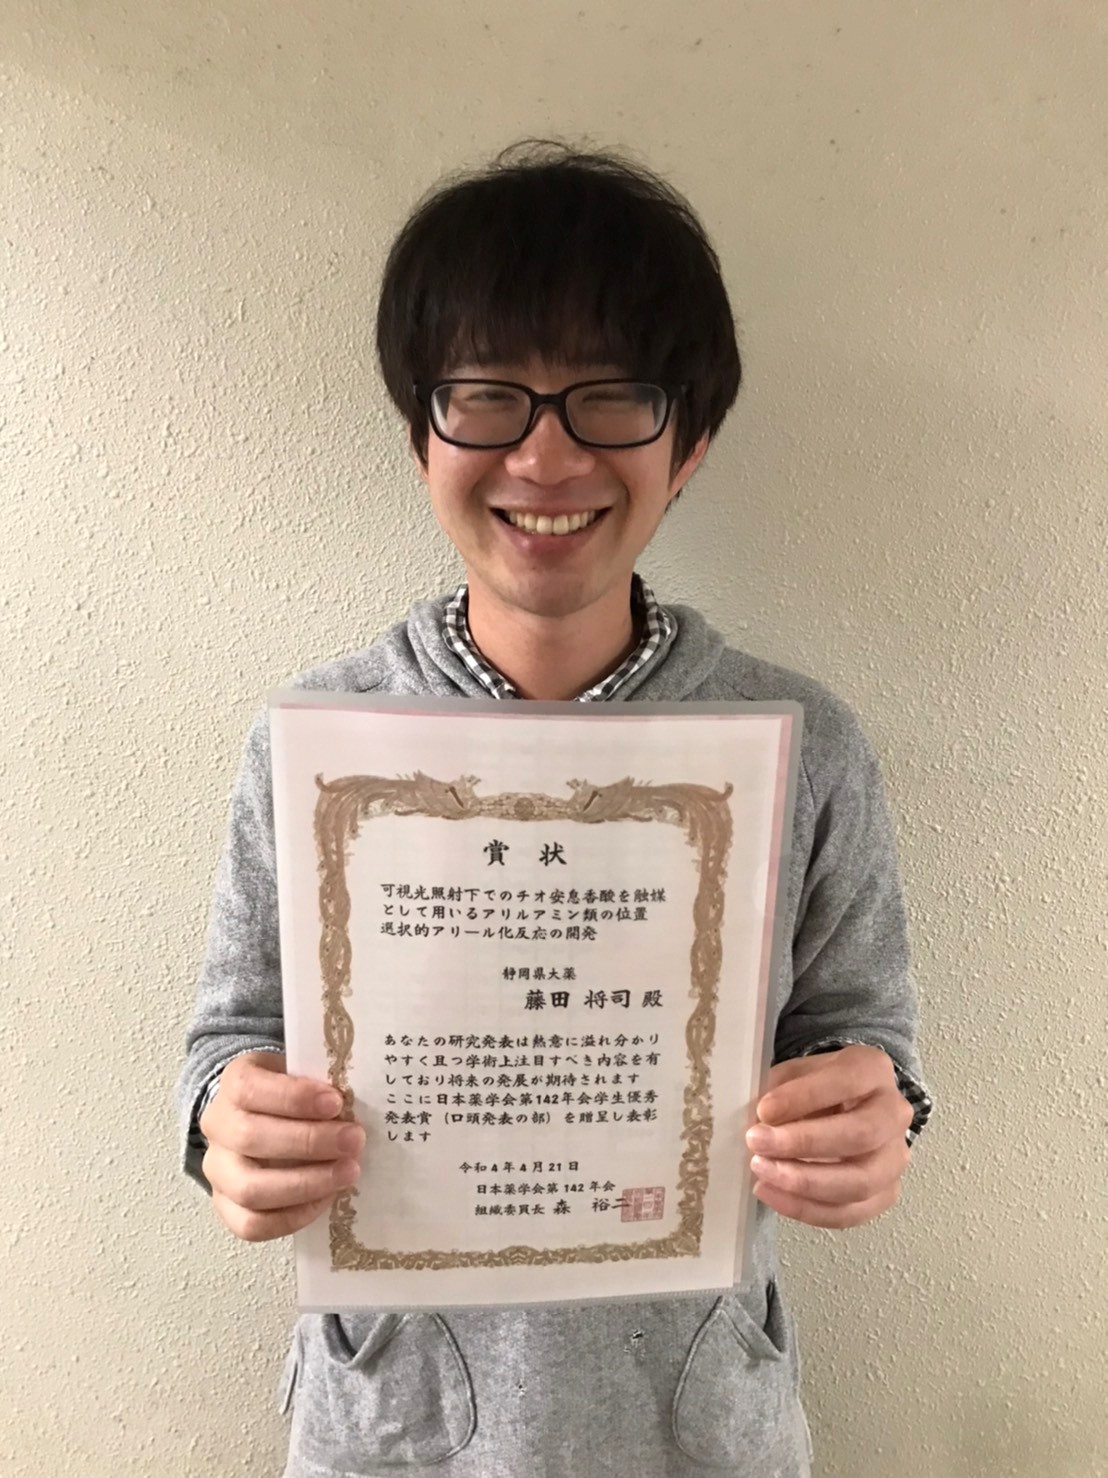 賞 状
可視光照射下でのチオ安息香酸を触媒
として用いるアリルアミン類の位置
選択的アリール化反応の開発
静岡県大薬
藤田 将司 殿
あなたの研究発表は熱意に溢れ分かり
やすく且つ学術上注目すべき内容を有
しており将来の発展が期待されます
ここに日本薬学会第142年会学生優秀
発表賞（口頭発表の部）を贈呈し表彰
します
令和4年4月21日
日本薬学会第142年会
組織委員長 森 裕二